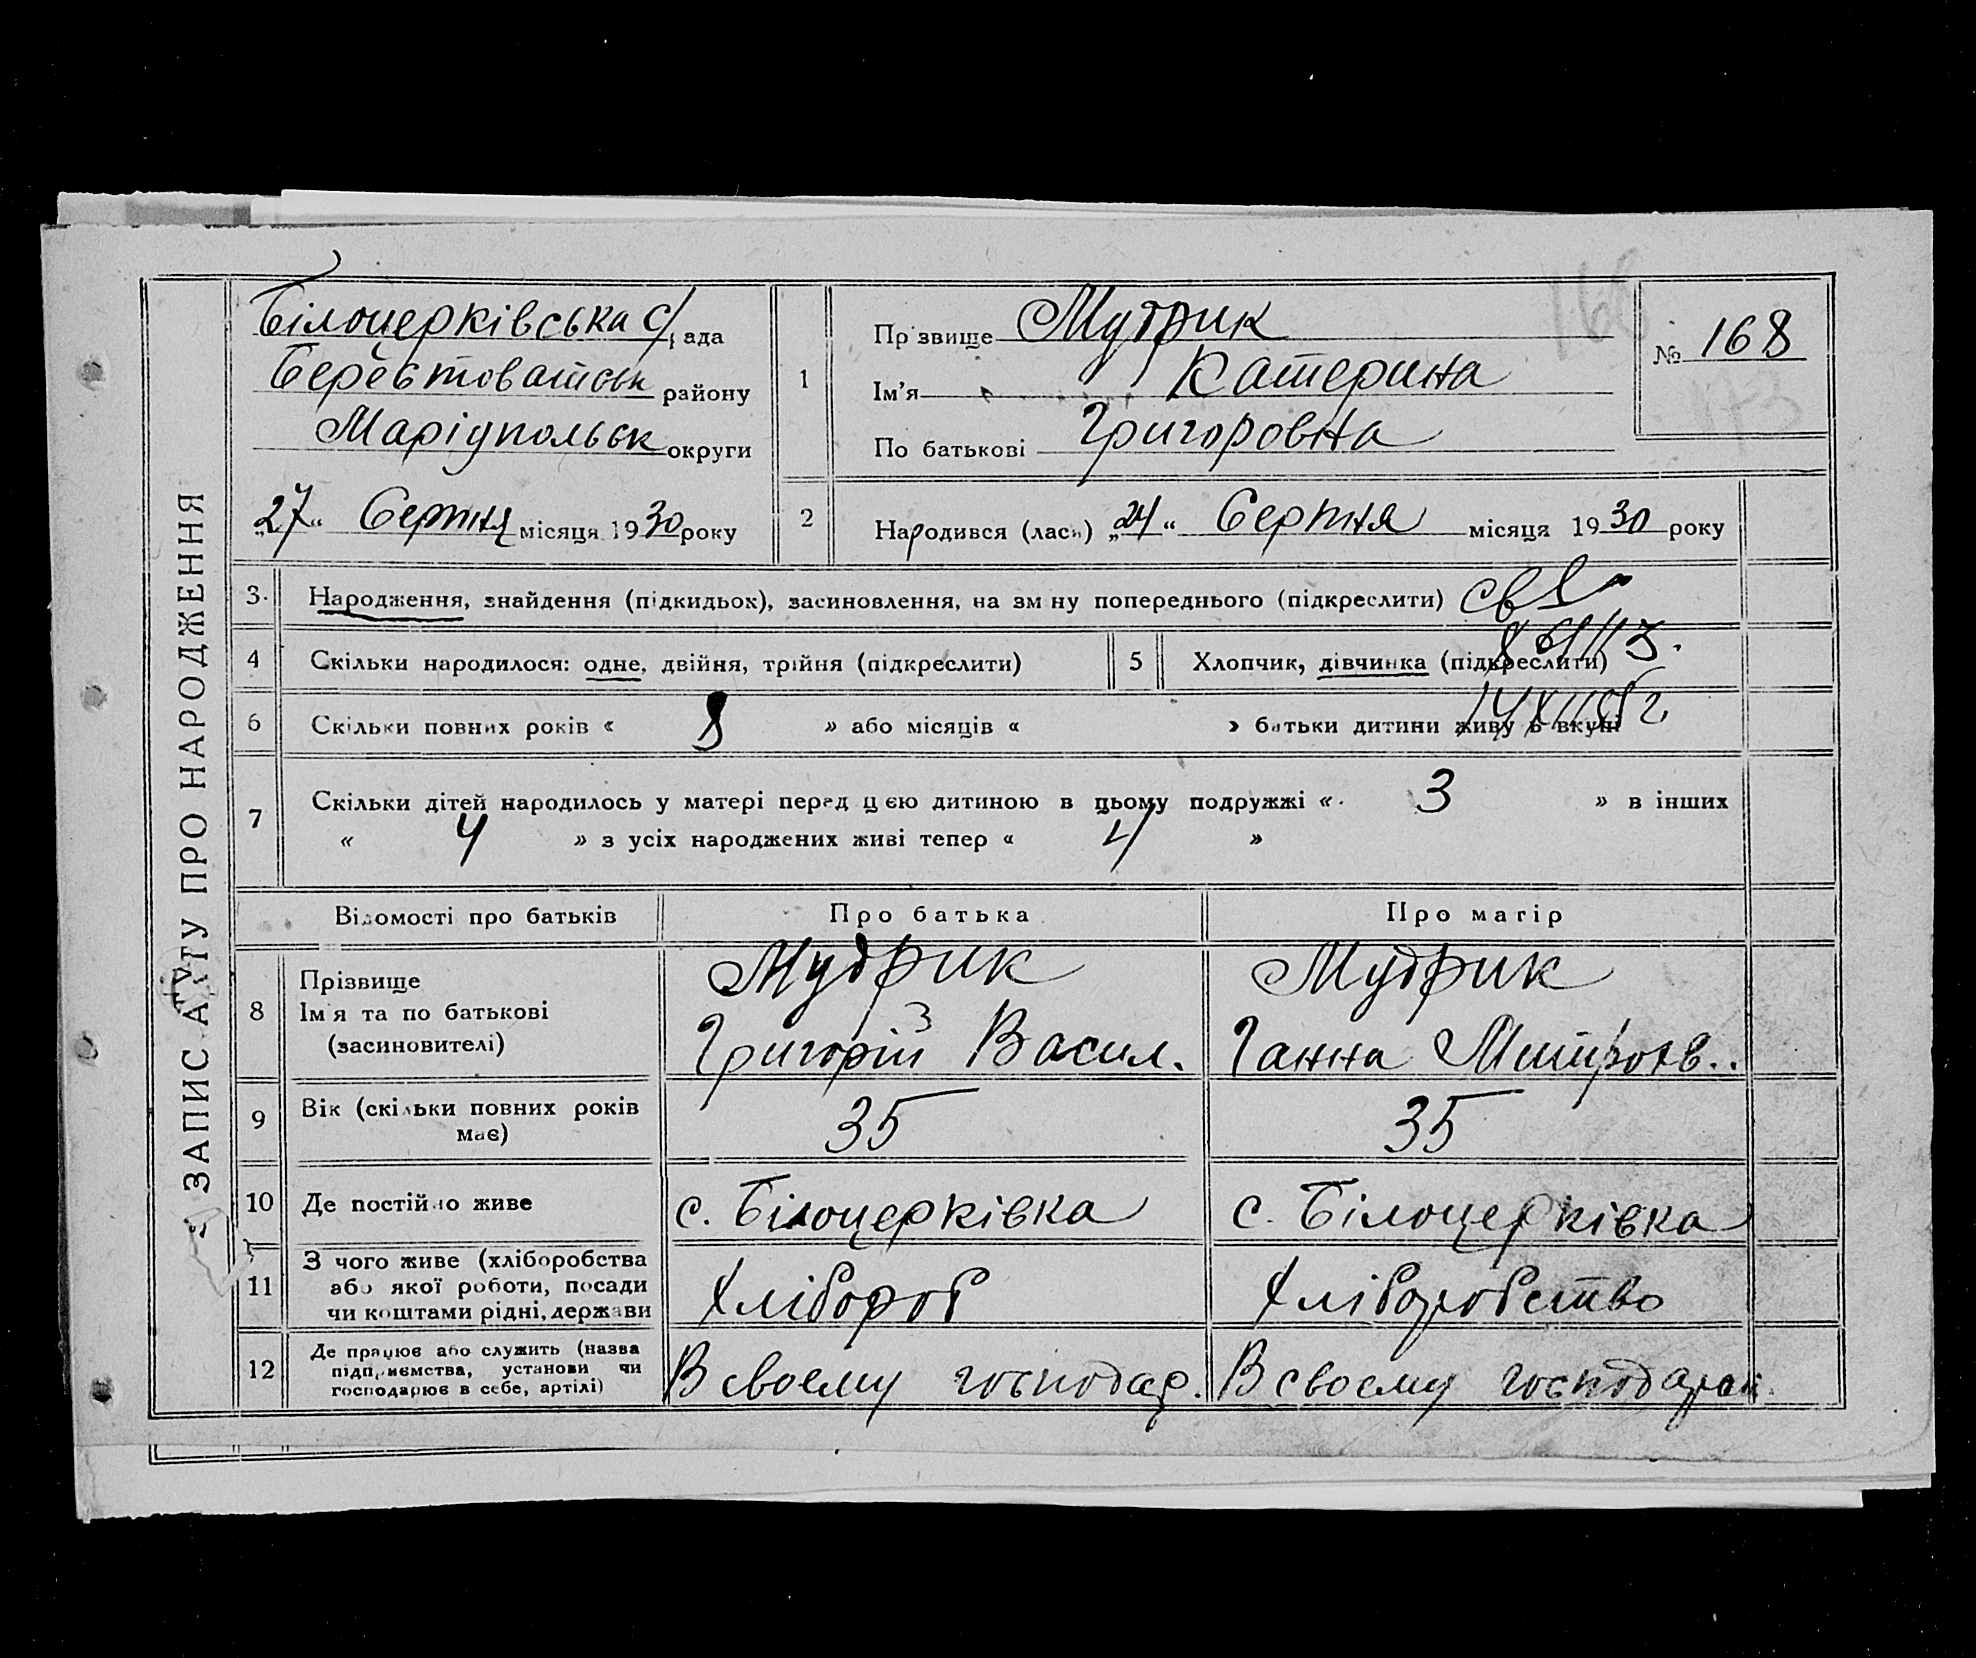 ЗАПИС АКТУ ПРО НАРОДЖЕННЯ
Білоцерківська с/рада
Берестоватськ району
Маріупольськ округи
„27“ Серпня місяця 1930 року
1
Прізвище Мудрик
Ім'я Катерина
По батькові Григоровна
№ 168
166
173
2 Народився (лась) „24“ Серпня місяця 1930 року
3. Народження, знайдення (підкидьок), засиновлення, на зміну попереднього (підкреслити)
4 Скільки народилося: одне, двійня, трійня (підкреслити) 5 Хлопчик, дівчинка (підкреслити)
6 Скільки повних років « 8 » або місяців « » батьки дитини живуть вкупі
7 Скільки дітей народилось у матері перед цією дитиною в цьому подружжі « 3 » в інших
« 4 » з усіх народжених живі тепер « 4 »
Відомості про батьків Про батька Про матір
8 Прізвище
Ім'я та по батькові
(засиновителі)
Мудрик
Григорій Васил.
Мудрик
Ганна Митроф..
9 Вік (скільки повних років
має)
35 35
10 Де постійно живе с. Білоцерківка с. Білоцерківка
11 З чого живе (хліборобства
або якої роботи, посади
чи коштами рідні, держави
Хлібороб Хліборобство
12 Де працює або служить (назва
підприємства, установи чи
господарює в себе, артілі)
В своему господар. В своему господарст.